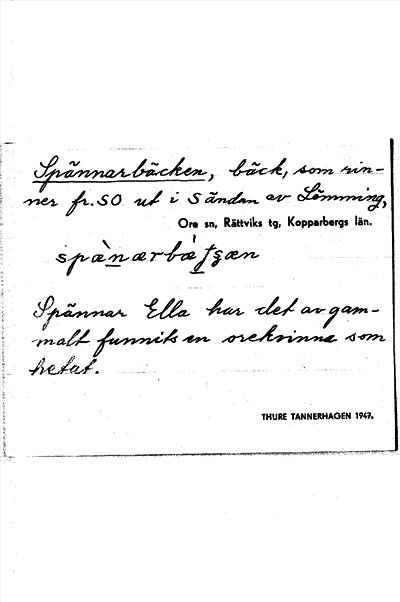 Spännarbäcken, bäck, som rin-
ner fr. SO ut i Sändan av Lömming,
Ore sn, Rättviks tg, Kopparbergs län.
Spännar Ella har det av gam-
malt funnits en orekvinna som
hetat.
THURE TANNERHAGEN 1947.